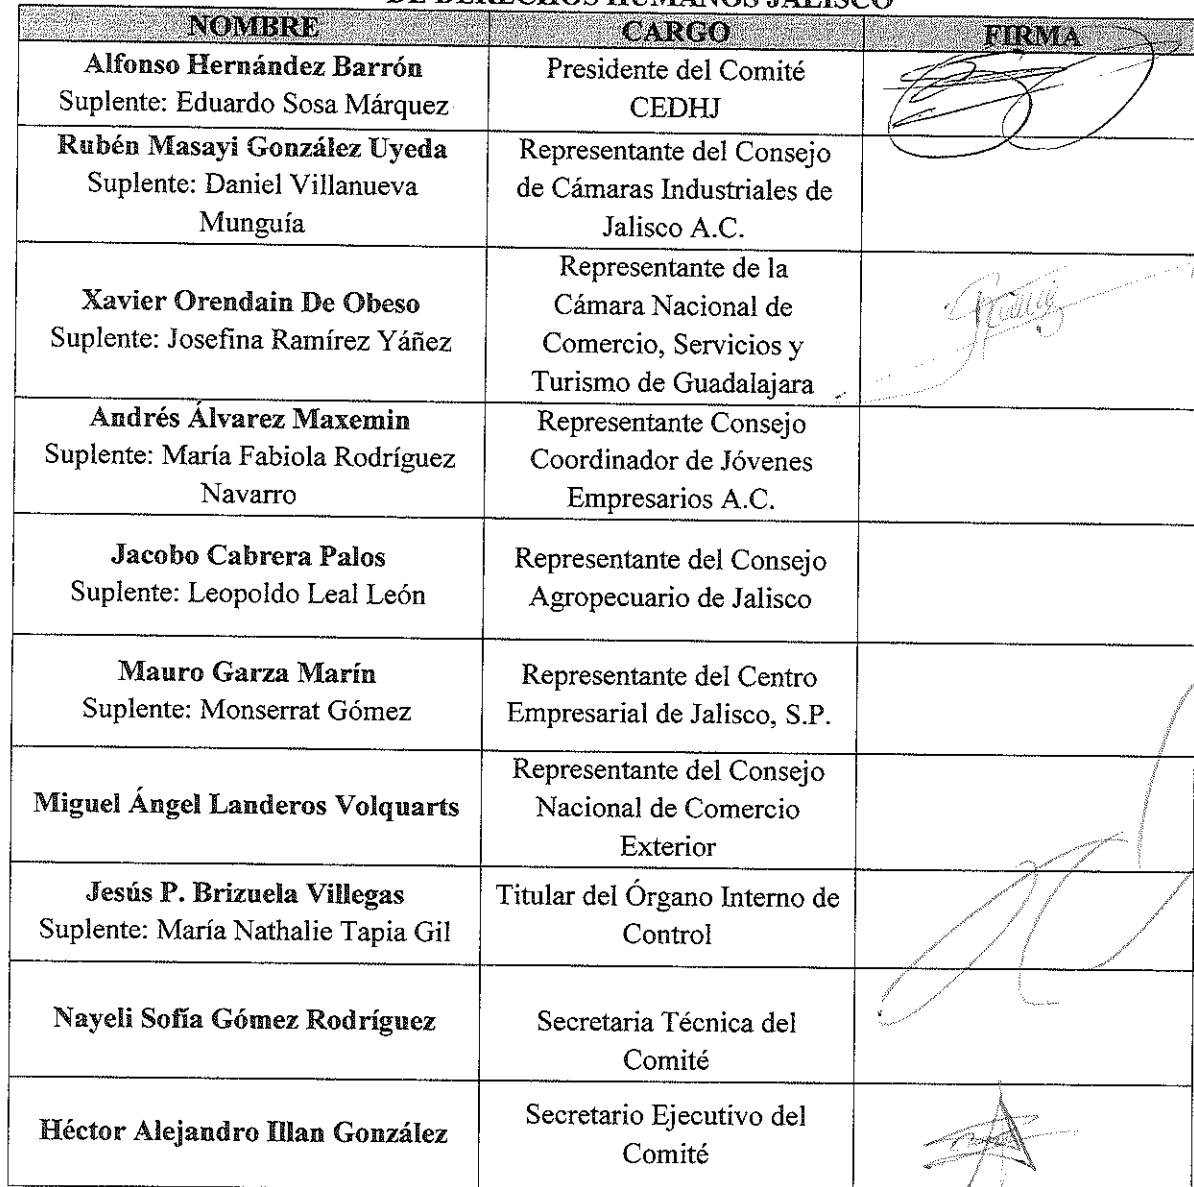 DE DERECHOS HUMANOS JALISCO
NOMBRE CARGO FIRMA
Alfonso Hernández Barrón
Suplente: Eduardo Sosa Márquez
Presidente del Comité
CEDHJ
Rubén Masayi González Uyeda
Suplente: Daniel Villanueva
Munguía
Representante del Consejo
de Cámaras Industriales de
Jalisco A.C.
Xavier Orendain De Obeso
Suplente: Josefina Ramírez Yáñez
Representante de la
Cámara Nacional de
Comercio, Servicios y
Turismo de Guadalajara
Andrés Álvarez Maxemin
Suplente: María Fabiola Rodríguez
Navarro
Representante Consejo
Coordinador de Jóvenes
Empresarios A.C.
Jacobo Cabrera Palos
Suplente: Leopoldo Leal León
Representante del Consejo
Agropecuario de Jalisco
Mauro Garza Marín
Suplente: Monserrat Gómez
Representante del Centro
Empresarial de Jalisco, S.P.
Miguel Ángel Landeros Volquarts
Representante del Consejo
Nacional de Comercio
Exterior
Jesús P. Brizuela Villegas
Suplente: María Nathalie Tapia Gil
Titular del Órgano Interno de
Control
Nayeli Sofía Gómez Rodríguez
Secretaria Técnica del
Comité
Héctor Alejandro Illan González
Secretario Ejecutivo del
Comité